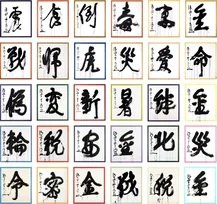 震 食 倒 毒 末 金
戦 帰 虎 災 愛 命
偽 変 新 暑 絆 金
輪 税 安 金 北 災
令 密 金 戦 税 金